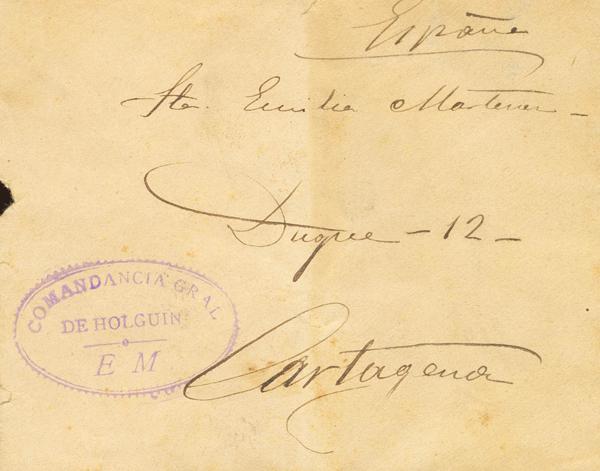 España
Sta. Emilia Martinez
Duque - 12 -
Cartagena
COMANDANCIA GRAL
DE HOLGUIN
E M